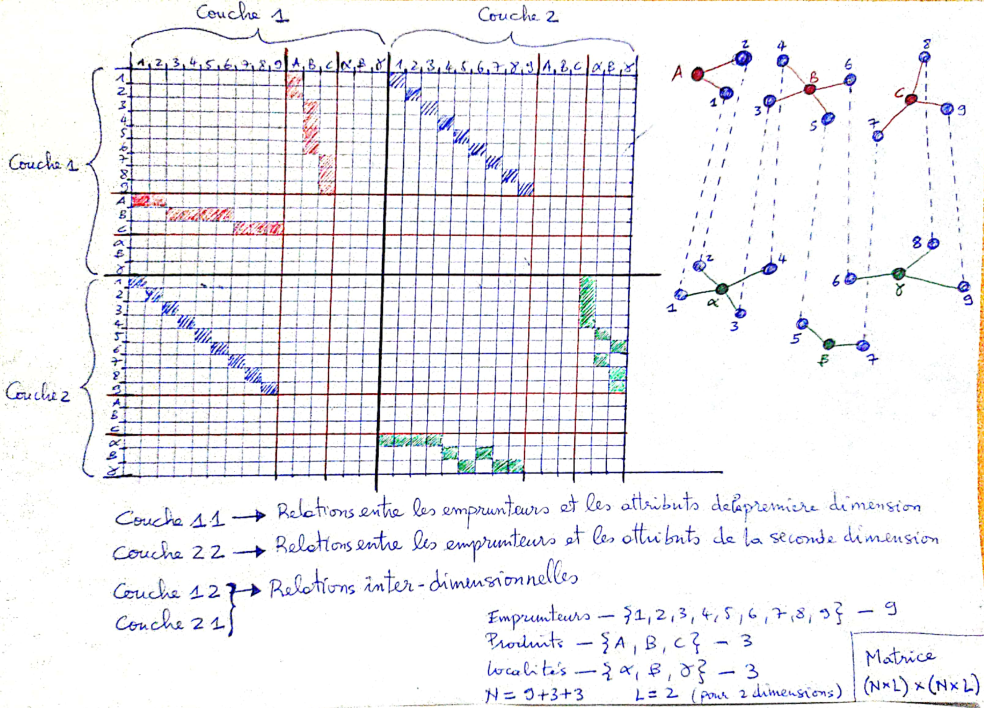 Couche 1
Couche 2
1, 2, 3, 4, 5, 6, 7, 8, 9 A, B, C α, β, γ 1, 2, 3, 4, 5, 6, 7, 8, 9 A, B, C α, β, γ
Couche 1
1
2
3
4
5
6
7
8
9
A
B
C
α
β
γ
Couche 2
1
2
3
4
5
6
7
8
9
A
B
C
α
β
γ
A 2 1
4 B 6 3 5
8 C 9 7
2 4 1 α 3
8 6 γ 9
5 β 7
Couche 11 → Relations entre les emprunteurs et les attributs de la premiere dimension
Couche 22 → Relations entre les emprunteurs et les attributs de la seconde dimension
Couche 12 } → Relations inter-dimensionnelles
Couche 21
Emprunteurs — {1, 2, 3, 4, 5, 6, 7, 8, 9} — 9
Produits — {A, B, C} — 3
Localités — {α, β, γ} — 3
N = 9+3+3 L = 2 (pour 2 dimensions)
Matrice
(N×L) × (N×L)